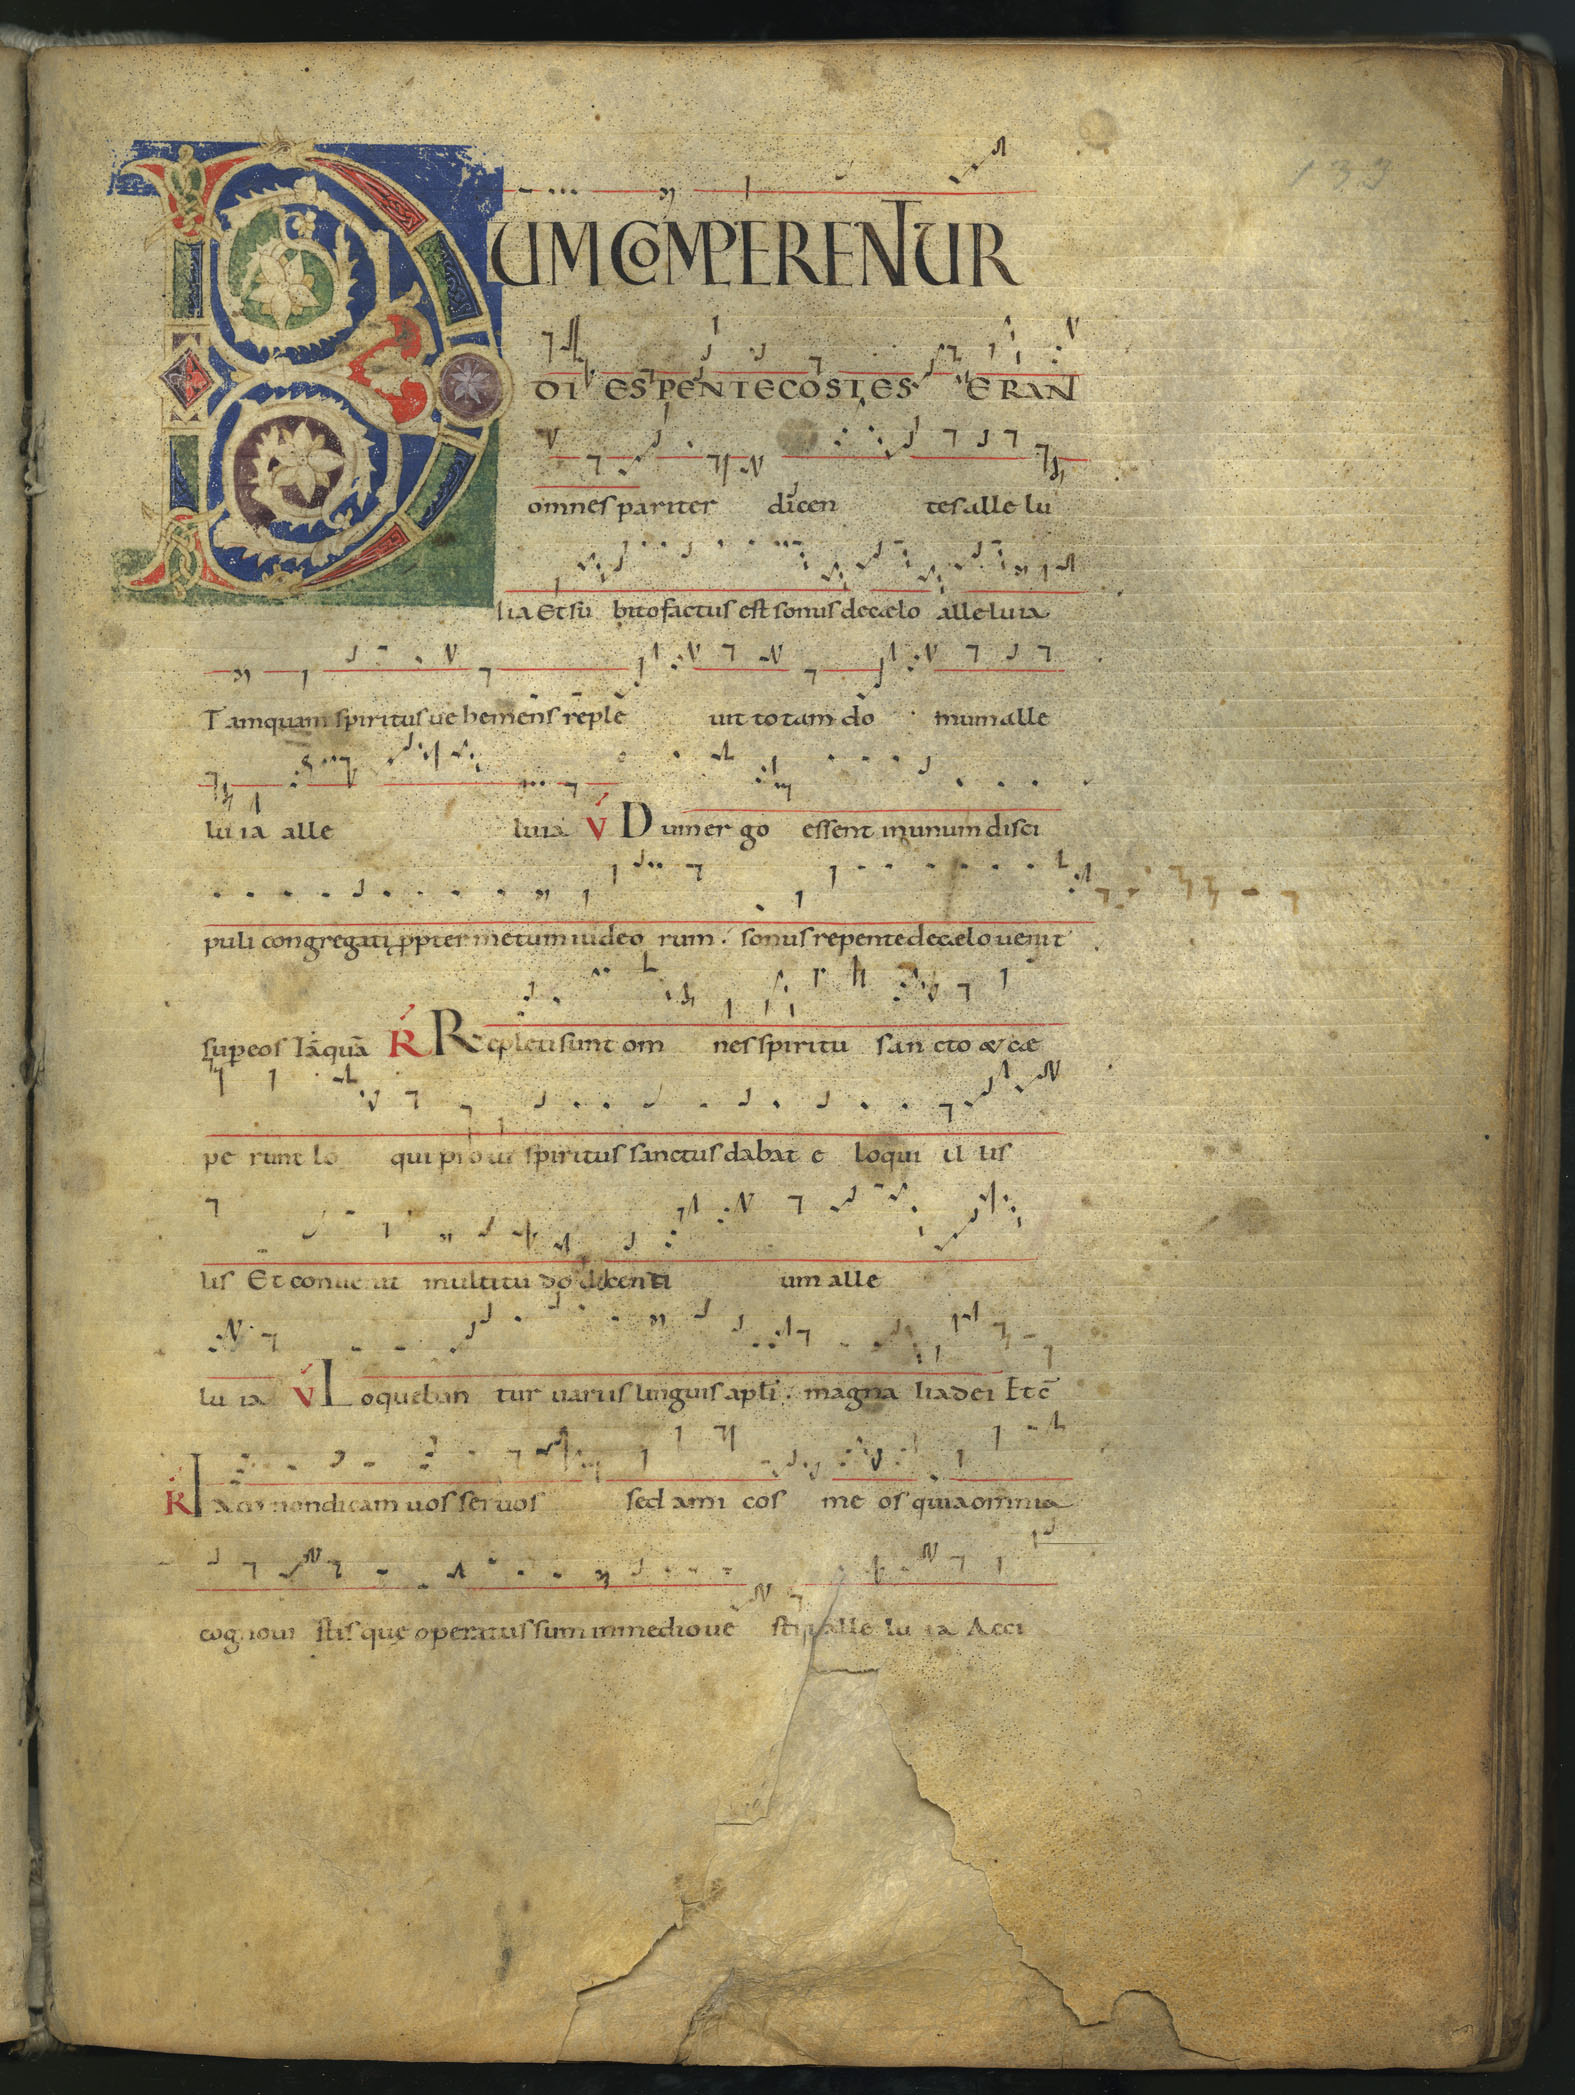 133
DUM COMPERENTUR
DI ES PENTECOSTES ERANT
omnes pariter dicen tes alle lu
lia Et sū bito factus est sonus de caelo alleluia
Tamquam spiritus ue hemens replē uit totam do mum alle
lu ia alle luia V Dum er go essent in unum disci
puli congregati ꝓpter metum iudeo rum. sonus repente de caelo uenit
sup eos Tāquā R Repleti sunt om nes spiritu san cto & cae
pe runt lo qui pro ut spiritus sanctus dabat e loqui il lis
lis Et conue nit multitu do dicenti um alle
lu ia V Loqueban tur variis linguis apłi. magna lia dei Et cē
R Iam non dicam uos seruos sed ami cos me os quia omnia
cognoui stis quę operatus sum in medio ue stri alle lu ia Acci